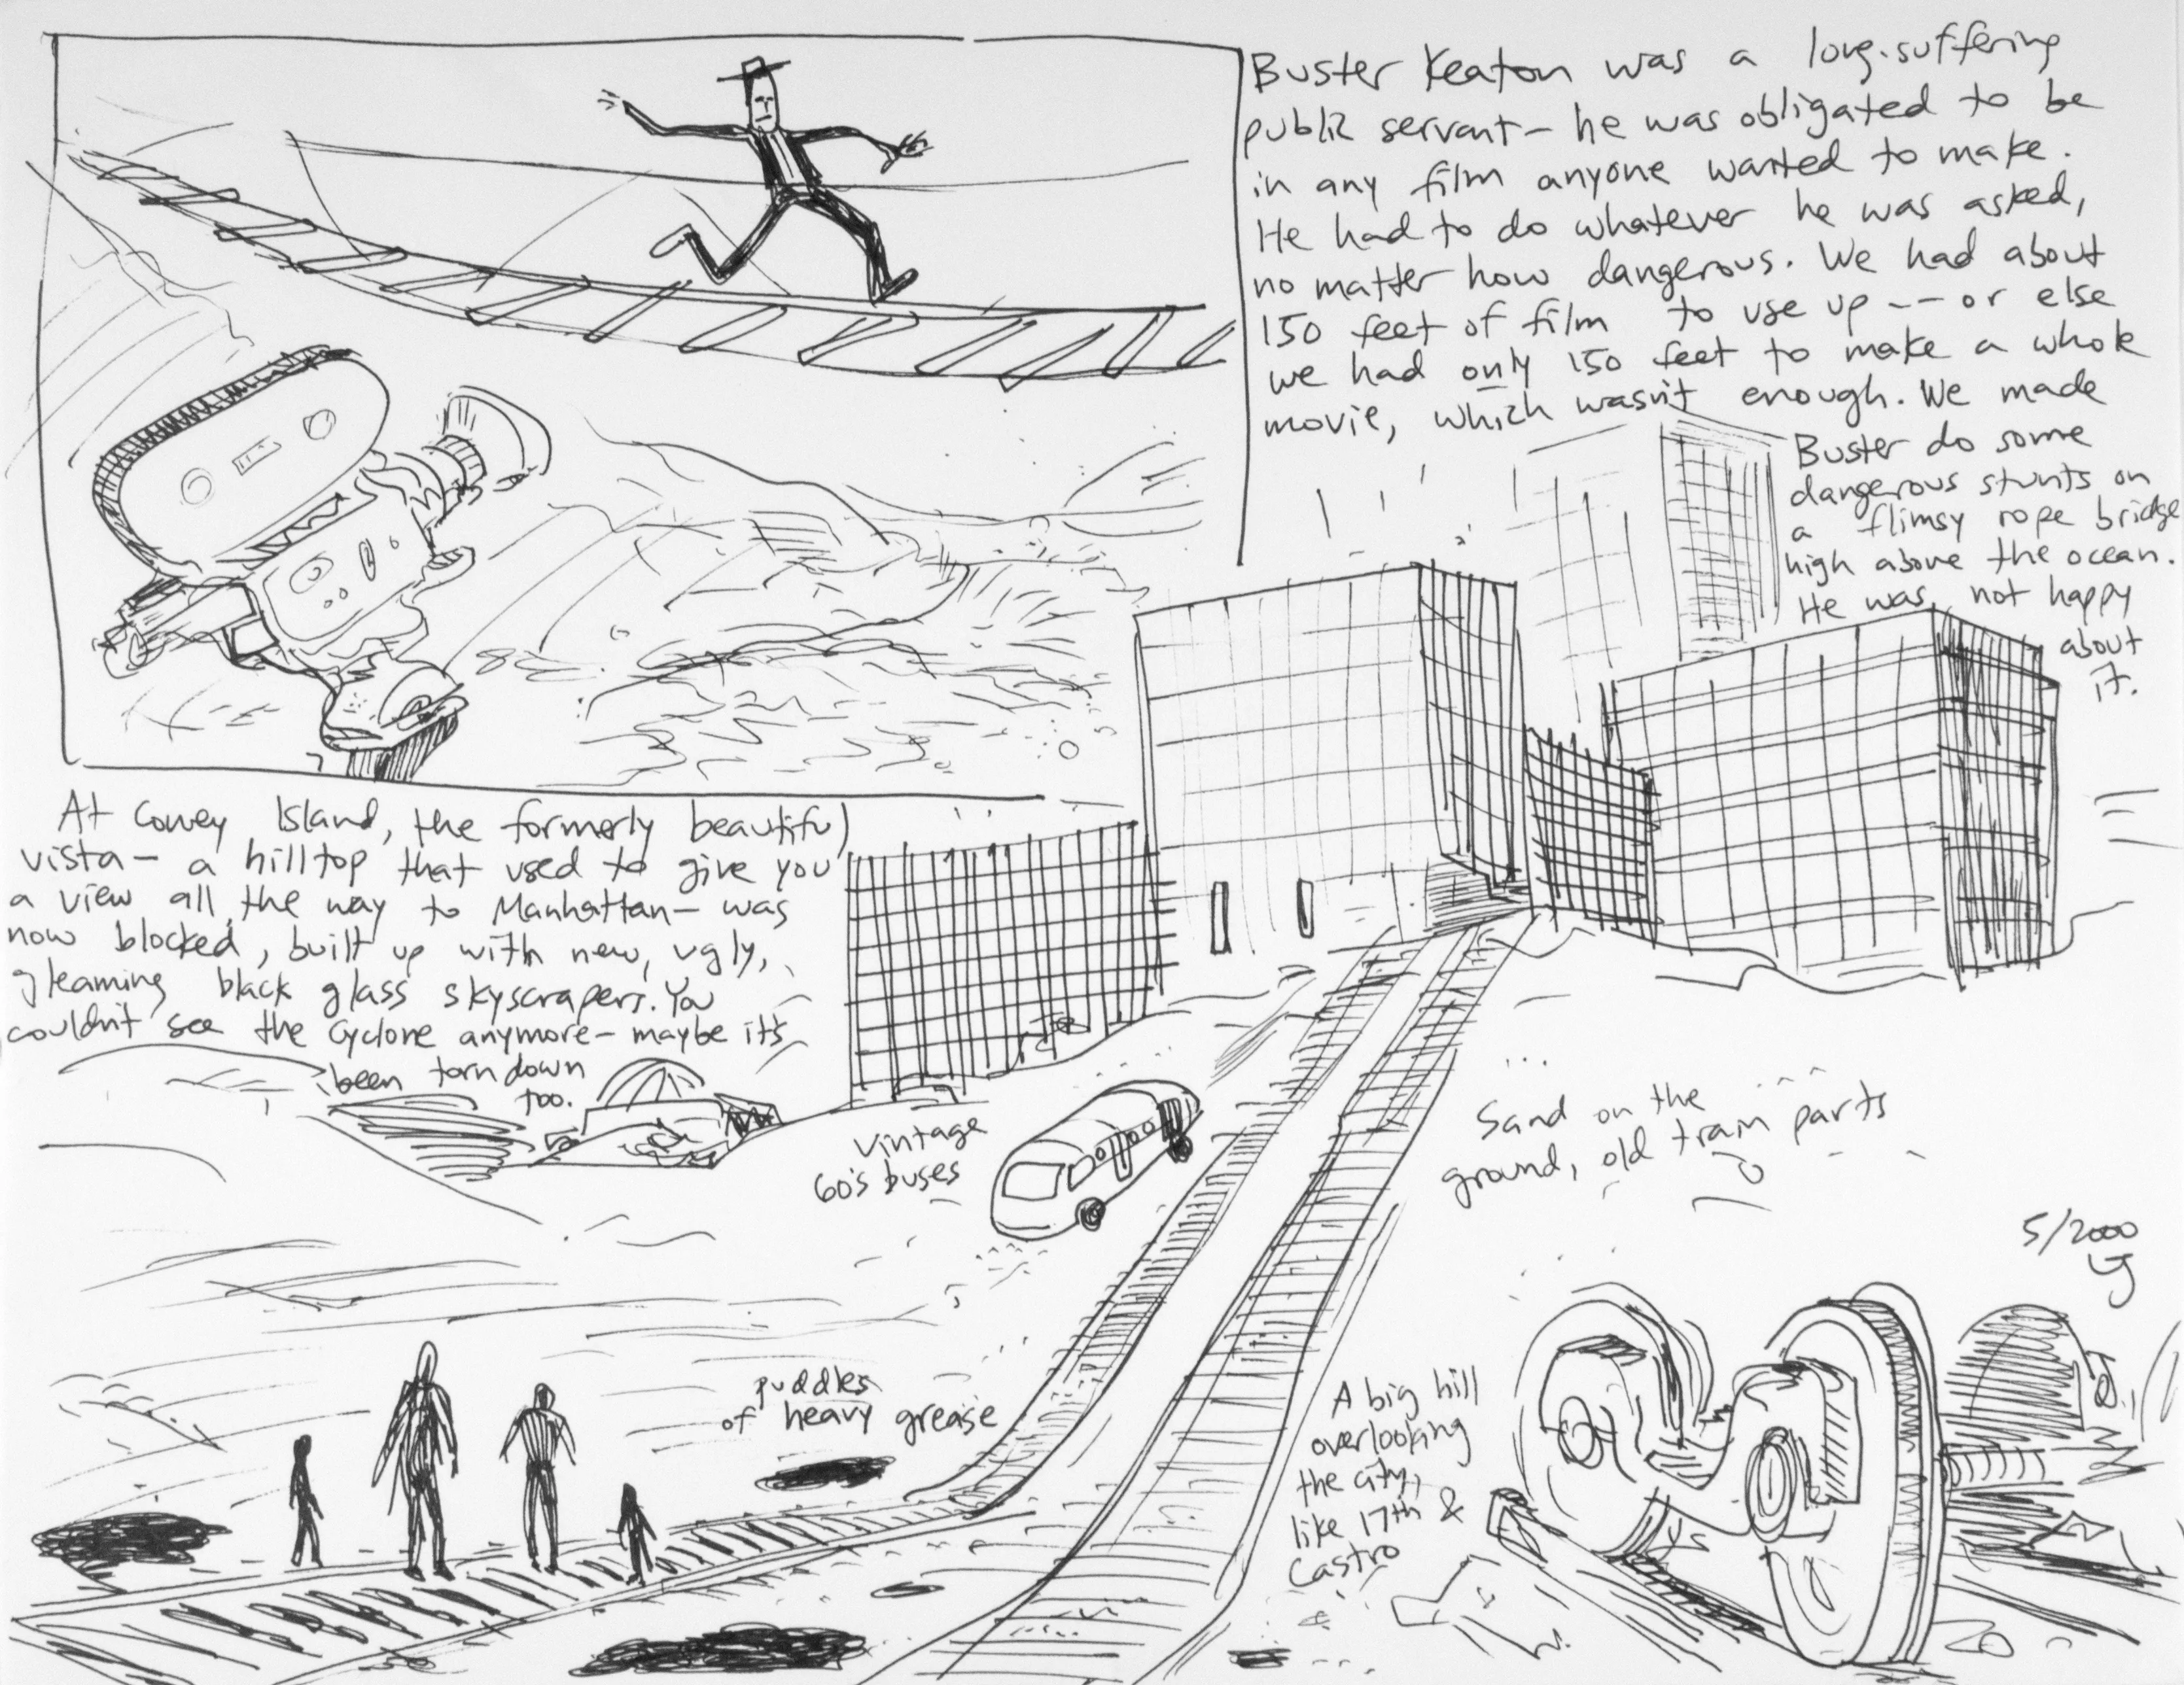 Buster Keaton was a long-suffering
public servant— he was obligated to be
in any film anyone wanted to make.
He had to do whatever he was asked,
no matter how dangerous. We had about
150 feet of film to use up -- or else
we had only 150 feet to make a whole
movie, which wasn't enough. We made
Buster do some
dangerous stunts on
a flimsy rope bridge
high above the ocean.
He was not happy
about
it.
At Coney Island, the formerly beautiful
vista— a hilltop that used to give you
a view all the way to Manhattan— was
now blocked, built up with new, ugly,
gleaming black glass skyscrapers. You
couldn't see the Cyclone anymore— maybe it's
been torn down
too.
vintage
60's buses
Sand on the
ground, old train parts
5/2000
puddles
of heavy grease
A big hill
overlooking
the city,
like 17th &
Castro